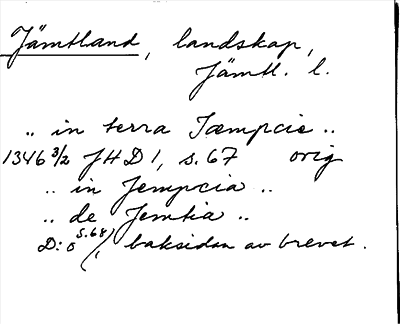 Jämtland, landskap,
Jämtl. l.
.. in terra Jæmpcie ..
1346 3/2 JHD 1, s. 67 orig
.. in Jempcia ..
.. de Jemtia ..
D:o s. 68), baksidan av brevet.